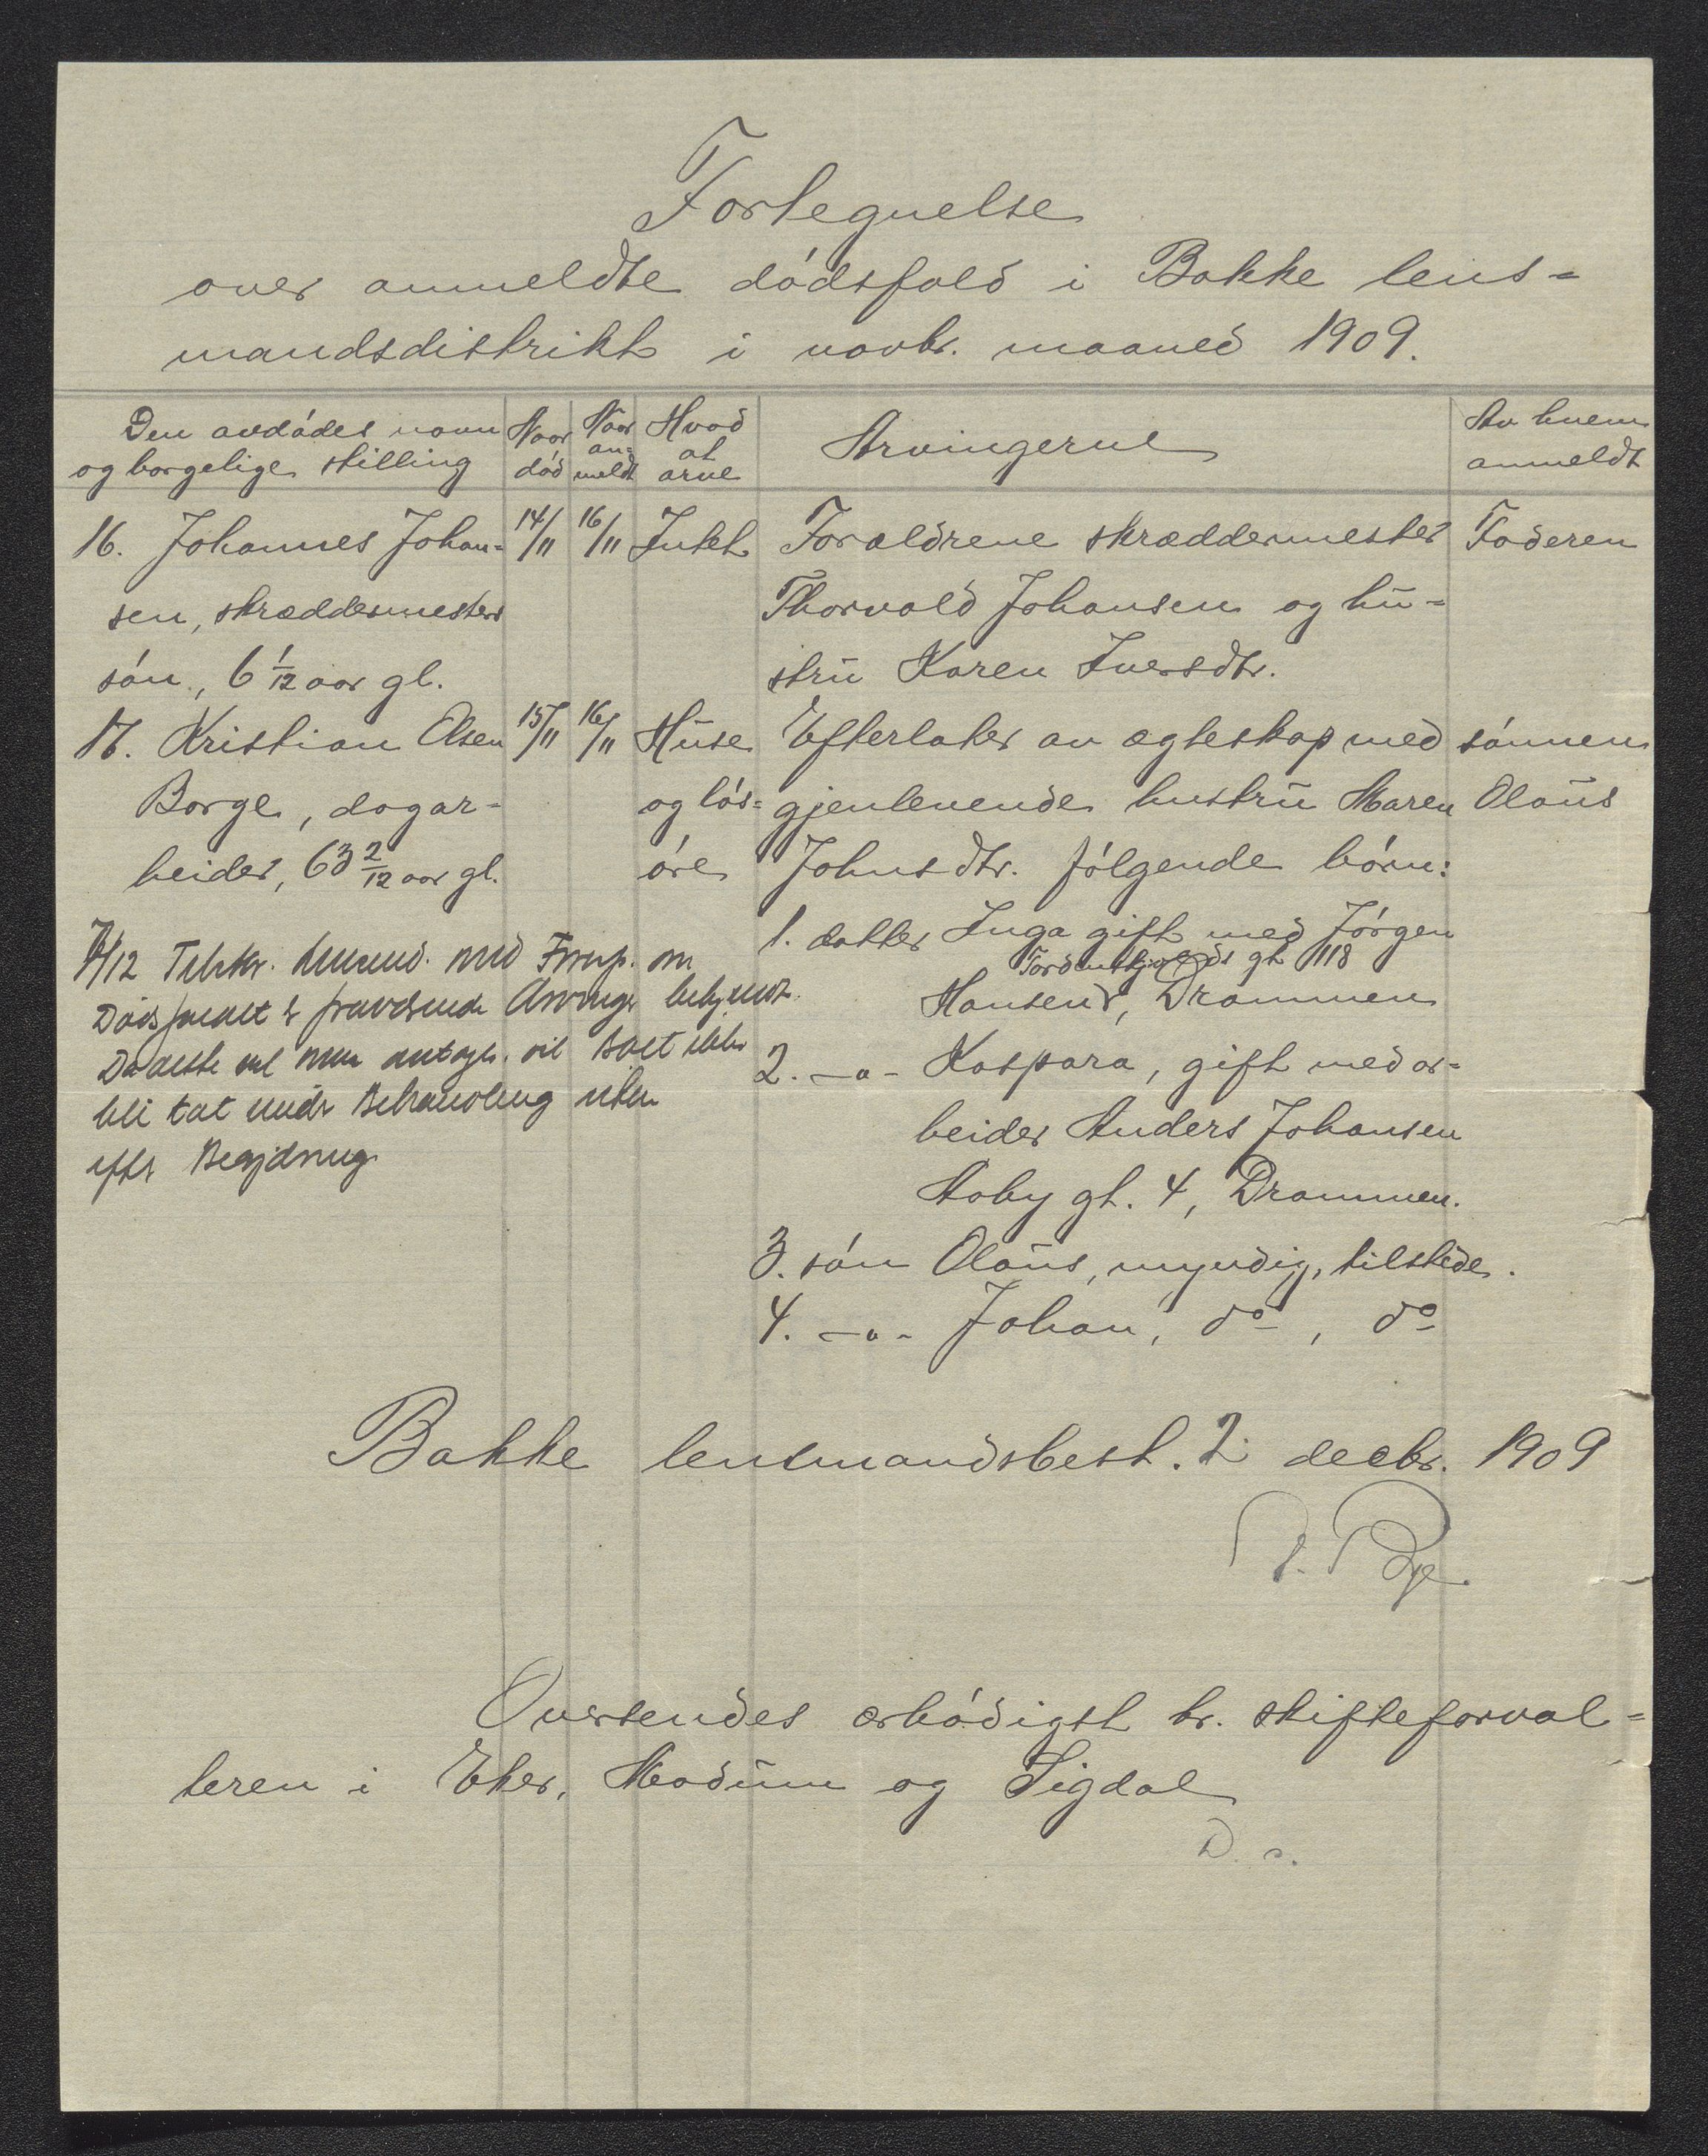 Fortegnelse
over anmeldte dødsfald i Bakke lens=
mandsdistrikt i novbr. maaned 1909.
Den avdødes navn
og borgelige stilling
Naar
død
Naar
an-
meldt
Hvad
at
arve
Arvingerne
Av hvem
anmeldt
16. Johannes Johan= 14/11 16/11 Intet Forældrene skræddermester Faderen
sen, skræddermesters Thorvald Johansen og hu=
søn, 6 1/12 aar gl. stru Karen Iversdtr.
17. Kristian Olsen 15/11 16/11 Huse Efterlater av egteskap med sønnen
Borge, dagar- og løs= gjenlevende hustru Maren Olaus
beider, 63 2/12 aar gl. øre Johnsdtr. følgende børn:
1. datter Inga gift med Jørgen
Tordenskjolds gt 118
Hansen, Drammen
2. -"- Kaspara, gift med ar=
beider Anders Johansen
Aaby gt. 4, Drammen.
3. søn Olaus, myndig, tilstede.
4. -"- Johan, do, do
/12 med om
Dødsfaldet Arvinger
vil Boet ikke
bli tat under Behandling uten
efter Begjæring
Bakke lensmandsbest. 2 decbr. 1909
Oversendes ærbødigst hr. skifteforval=
teren i Eker, Modum og Sigdal
D. s.